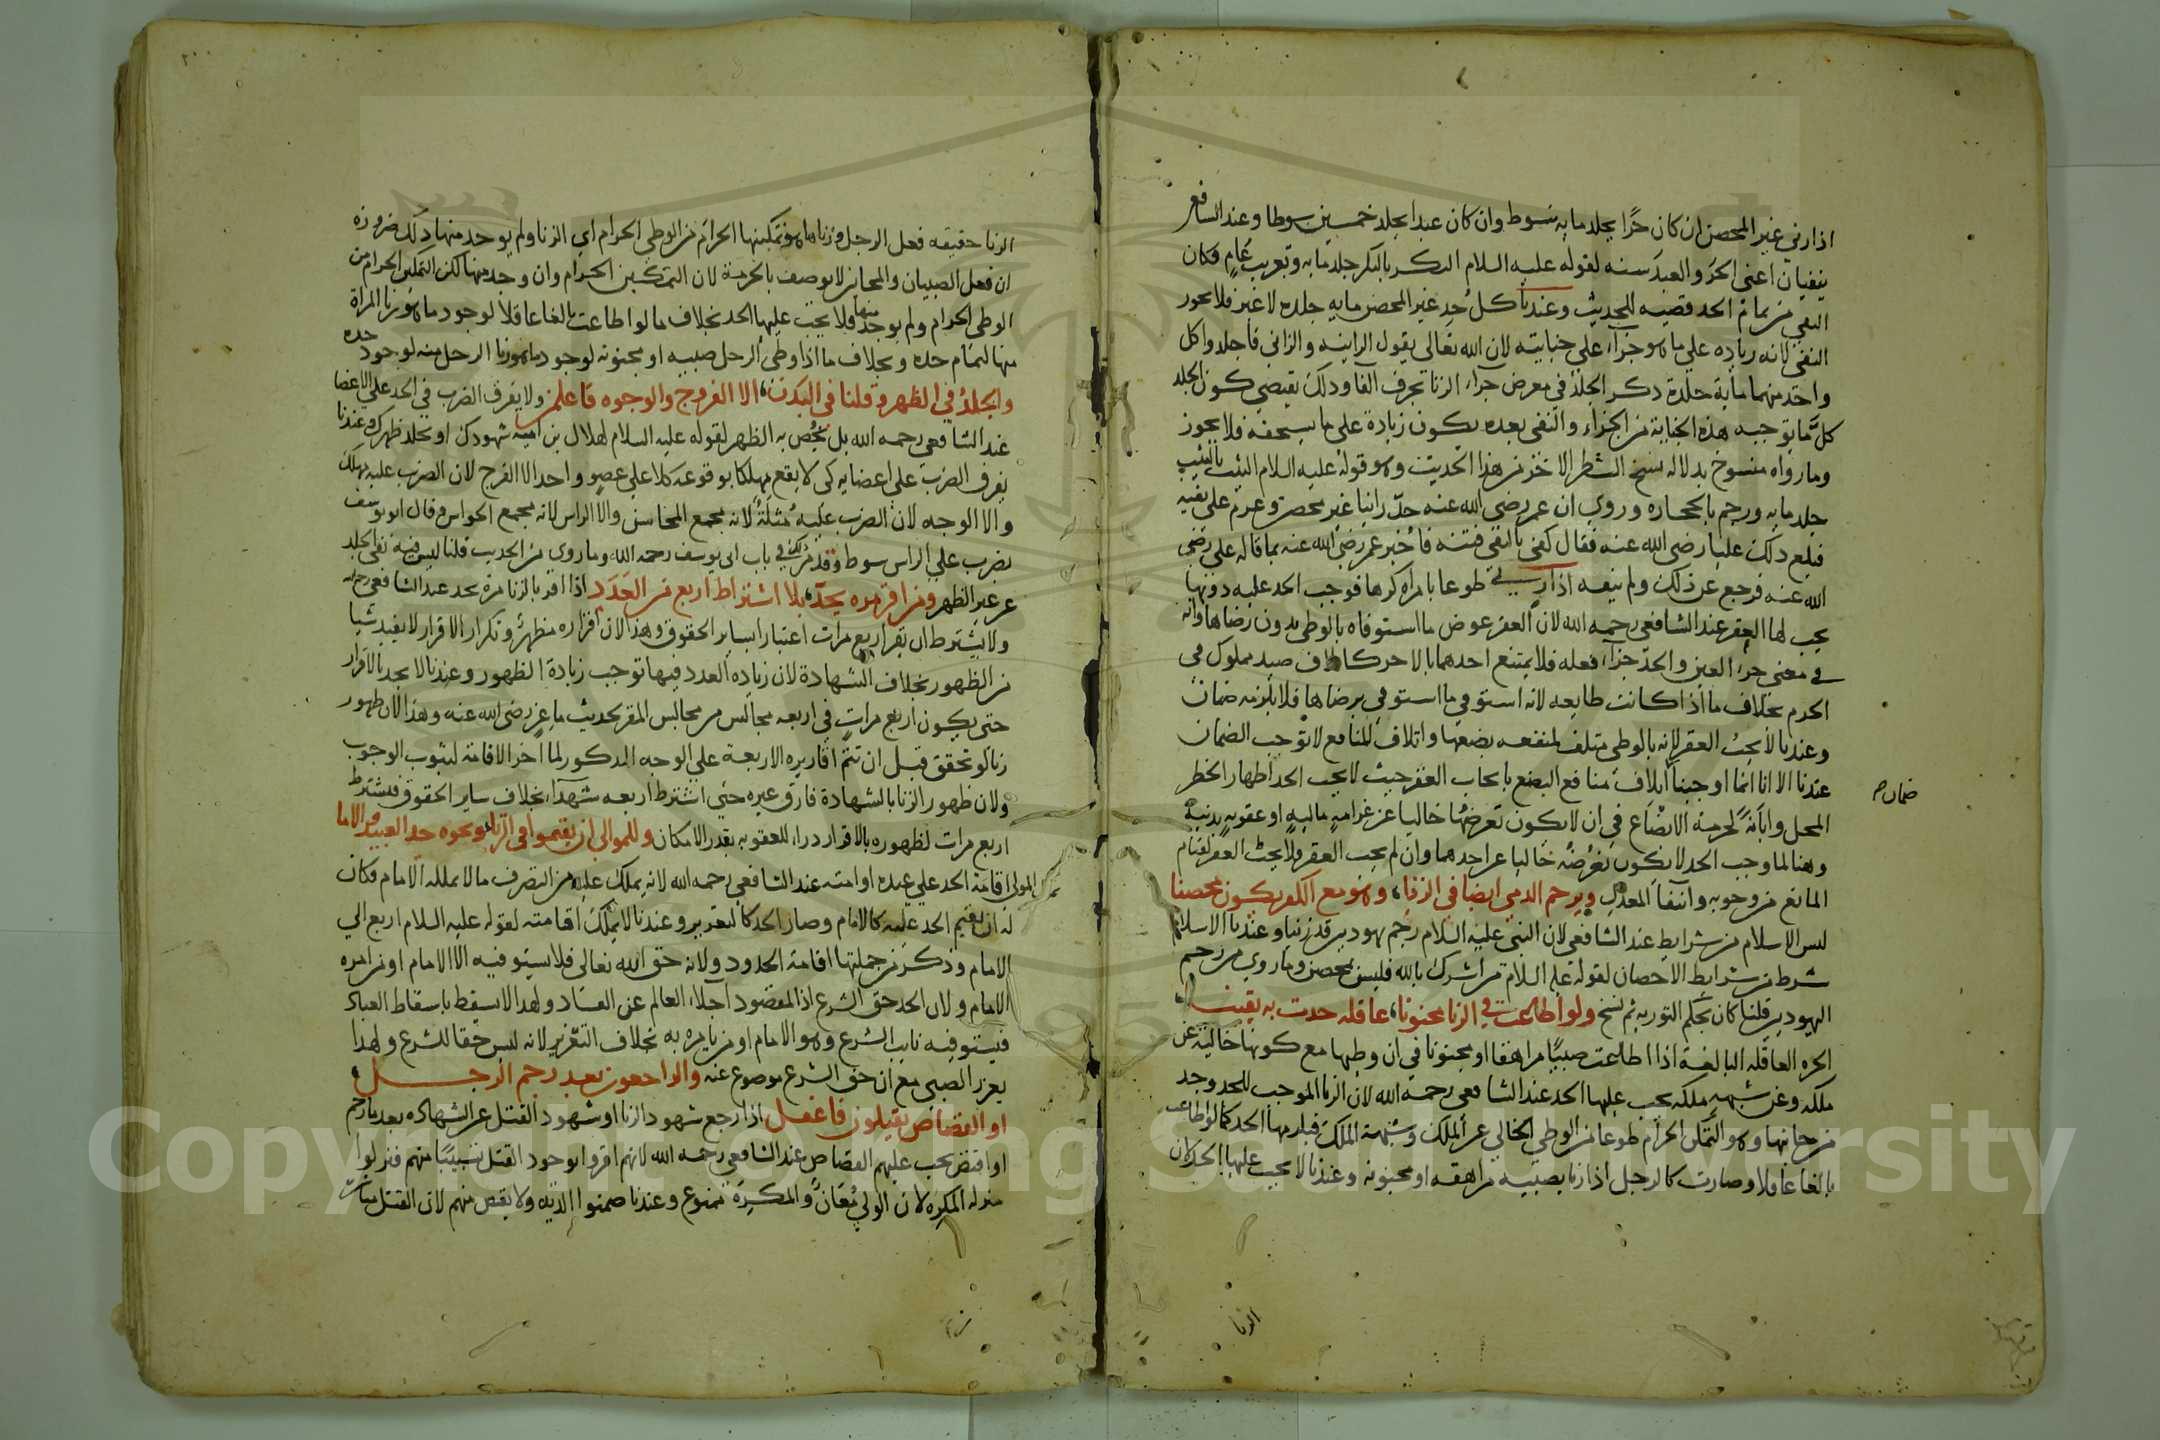 اذا زني غير المحصن ان كان حرا يجلد مايه سوط وان كان عبدا يجلد خمسين سوطا وعند الشافعي
ينفيان اعني الحر والعبد سنه لقوله عليه السلام البكر بالبكر جلد مايه وتغريب عام فكان
النفي من تمام الحد قضيه للحديث وعندنا كل حد غير المحصن مايه جلده لا غير فلا يجوز
النفي لانه زياده علي ما هو جزاء علي جنايته لان الله تعالى يقول الزانيه والزاني فاجلدوا كل
واحد منهما ماية جلدة ذكر الجلد في معرض جزاء الزنا بحرف الفا وذلك يقتضي كون الجلد
كل ما توجبه هذه الجناية من الجزاء والنفي بعده يكون زيادة علي ما يستحقه فلا يجوز
وما رواه منسوخ بدلاله نسخ الشطر الاخر من هذا الحديث وهو قوله عليه السلام الثيب بالثيب
جلد مايه ورجم بالحجاره وروي ان عمر رضي الله عنه حد زانيا غير محصن وعزم على نفيه
فبلغ ذلك عليا رضي الله عنه فقال كفي بالنفي فتنه فاخبر عمر رضي الله عنه بما قاله علي رضي
الله عنه فرجع عن ذلك ولم ينفه اذا زني طوعا بامراه كرها فوجب الحد عليه دونها
يجب لها العقر عند الشافعي رحمه الله لان العقر عوض ما استوفاه بالوطي بدون رضاها وانه
في معني جزء العين والحد جزاء فعله فلا يمتنع احدهما بالاخر كاتلاف صيد مملوك في
الحرم بخلاف ما اذا كانت طايعه لانه استوفي ما استوفي برضاها فلا يلزمه ضمان
وعندنا لا يجب العقر لانه بالوطي متلف لمنفعه بضعها واتلاف المنافع لا توجب الضمان
عندنا الا انا انما اوجبنا ابلاف منافع البضع بايجاب العقر حيث لا يجب الحد اظهار الخطر
ضمان صح
المحل وابانة لحرمة الابضاع في ان لا يكون تعرضها خاليا عن غرامه ماليه او عقوبه بدنية
وهنا لما وجب الحد لا يكون تعرضه خاليا عن احدهما وان لم يجب العقر فلا يجب العقر لقيام
المانع من وجوبه وانتفا المعدل ويرجم الذمي ايضا في الزنا وهو مع الكفر يكون محصنا
ليس الاسلام من شرايط عند الشافعي لان النبي عليه السلام رجم يهوديين قد زنيا وعندنا الاسلام
شرط من شرايط الاحصان لقوله عليه السلام من اشرك بالله فليس بمحصن وما روي من رجم
اليهوديين قلنا كان بحكم التوريه ثم نسخ ولو اطاعت في الزنا مجنونا عاقله حدت به يقينا
الحره العاقله البالغة اذا اطاعت صبيا مراهقا او مجنونا في ان وطيها مع كونها خالية عن
ملكه وعن شبهه ملكه يجب عليها الحد عند الشافعي رحمه الله لان الزنا الموجب للحد وجد
من جانبها وهو التمكن الحرام طوعا من الوطي الخالي عن الملك وشبهة الملك فيلزمها الحد كما لو اطاعت
بالغا عاقلا وصارت كالرجل اذا زنا بصبيه مراهقه او مجنونه وعندنا لا يجب عليها الحد لان
الزنا
الزنا حقيقه فعل الرجل وزناها هو تمكينها الحرام من الوطي الحرام اي الزنا ولم يوجد منها ذلك ضروره
ان فعل الصبيان والمجانين لا يوصف بالحرمة لان التمكين الحرام وان وجد منها لكن التمكين الحرام من
الوطي الحرام ولم يوجد منها فلا يجب عليها الحد بخلاف ما لو اطاعت بالغا عاقلا لوجود ما هو زنا المراة
منها لتمام حده وبخلاف ما اذا وطي الرجل صبيه او مجنونه لوجود ما هو زنا الرجل منه لوجود حده
والجلد في الظهر وقلنا في البدن الا الفروج والوجوه فاعلمن ولا يفرق الضرب في الحد علي الاعضا
عند الشافعي رحمه الله بل يخص به الظهر لقوله عليه السلام لهلال بن امية شهودك او تجلد ظهرك وعندنا
يفرق الضرب علي اعضايه كي لا يقع مهلكا بوقوعه كلا علي عضو واحد الا الفرج لان الضرب عليه مهلك
والا الوجه لان الضرب عليه مثلة لانه مجمع المحاسن والا الراس لانه مجمع الحواس وقال ابو يوسف
يضرب علي الراس سوط وقد مر ذلك في باب ابي يوسف رحمه الله وما روي من الحديث قلنا ليس فيه نفي الجلد
عن غير الظهر ومن اقر مره يحد بلا اشتراط اربع من العدد اذا اقر بالزنا مرة يحد عند الشافعي رحمه الله
ولا يشترط ان يقر اربع مرات اعتبارا بساير الحقوق وهذا لان اقراره مظهر وتكرار الاقرار لا يفيد شيا
من الظهور بخلاف الشهادة لان زياده العدد فيها توجب زيادة الظهور وعندنا لا يحد بالاقرار
حتى يكون اربع مرات في اربعه مجالس من مجالس المقر بحديث ماعز رضي الله عنه وهذا لان ظهور
زنا لو تحقق قبل ان تتم اقاريره الاربعة علي الوجه المذكور لما اخر الاقامة لثبوت الوجوب
ولان ظهور الزنا بالشهادة فارق غيره حتى اشترط اربعه شهداء بخلاف ساير الحقوق فيشترط
اربع مرات لظهوره بالاقرار درا للعقوبه بقدر الامكان وللموالي ان يقيموا في الزنا ونحوه حد العبيد والاما
يملك المولى اقامة الحد علي عبده او امته عند الشافعي رحمه الله لانه يملك عليه من التصرف ما لا يملكه الامام فكان
له ان يقيم الحد عليه كالامام وصار الحد كالتعزير وعندنا لا يملك اقامته لقوله عليه السلام اربع الي
الامام وذكر من جملتها اقامة الحدود ولانه حق الله تعالى فلا يستوفيه الا الامام او من امره
الامام ولان الحد حق الشرع اذ المقصود اخلاء العالم عن الفساد ولهذا لا يسقط باسقاط العباد
فيستوفيه نايب الشرع وهو الامام او من يامره به بخلاف التعزير لانه ليس حقا للشرع ولهذا
يعزر الصبي مع ان حق الشرع موضوع عنه والراجعون بعد رجم الرجل
او القصاص يقتلون فاعقل اذا رجع شهود الزنا او شهود القتل عن الشهاده بعد ما رجم
او اقتص يجب عليهم القصاص عند الشافعي رحمه الله لانهم اقروا بوجود القتل تسبيبا منهم فنزلوا
منزله المكره لان الولي معان والمكره ممنوع وعندنا ضمنوا الديه ولا يقتص منهم لان القتل مباشرة
Copyright © King Saud University